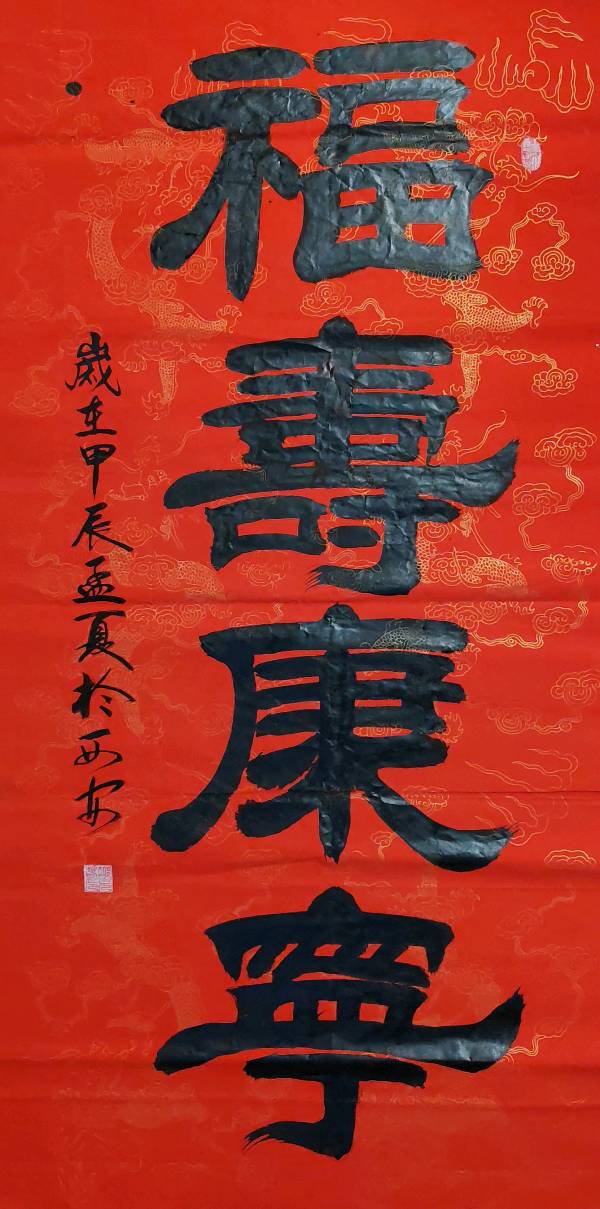 福壽康寧
歲在甲辰孟夏於西安